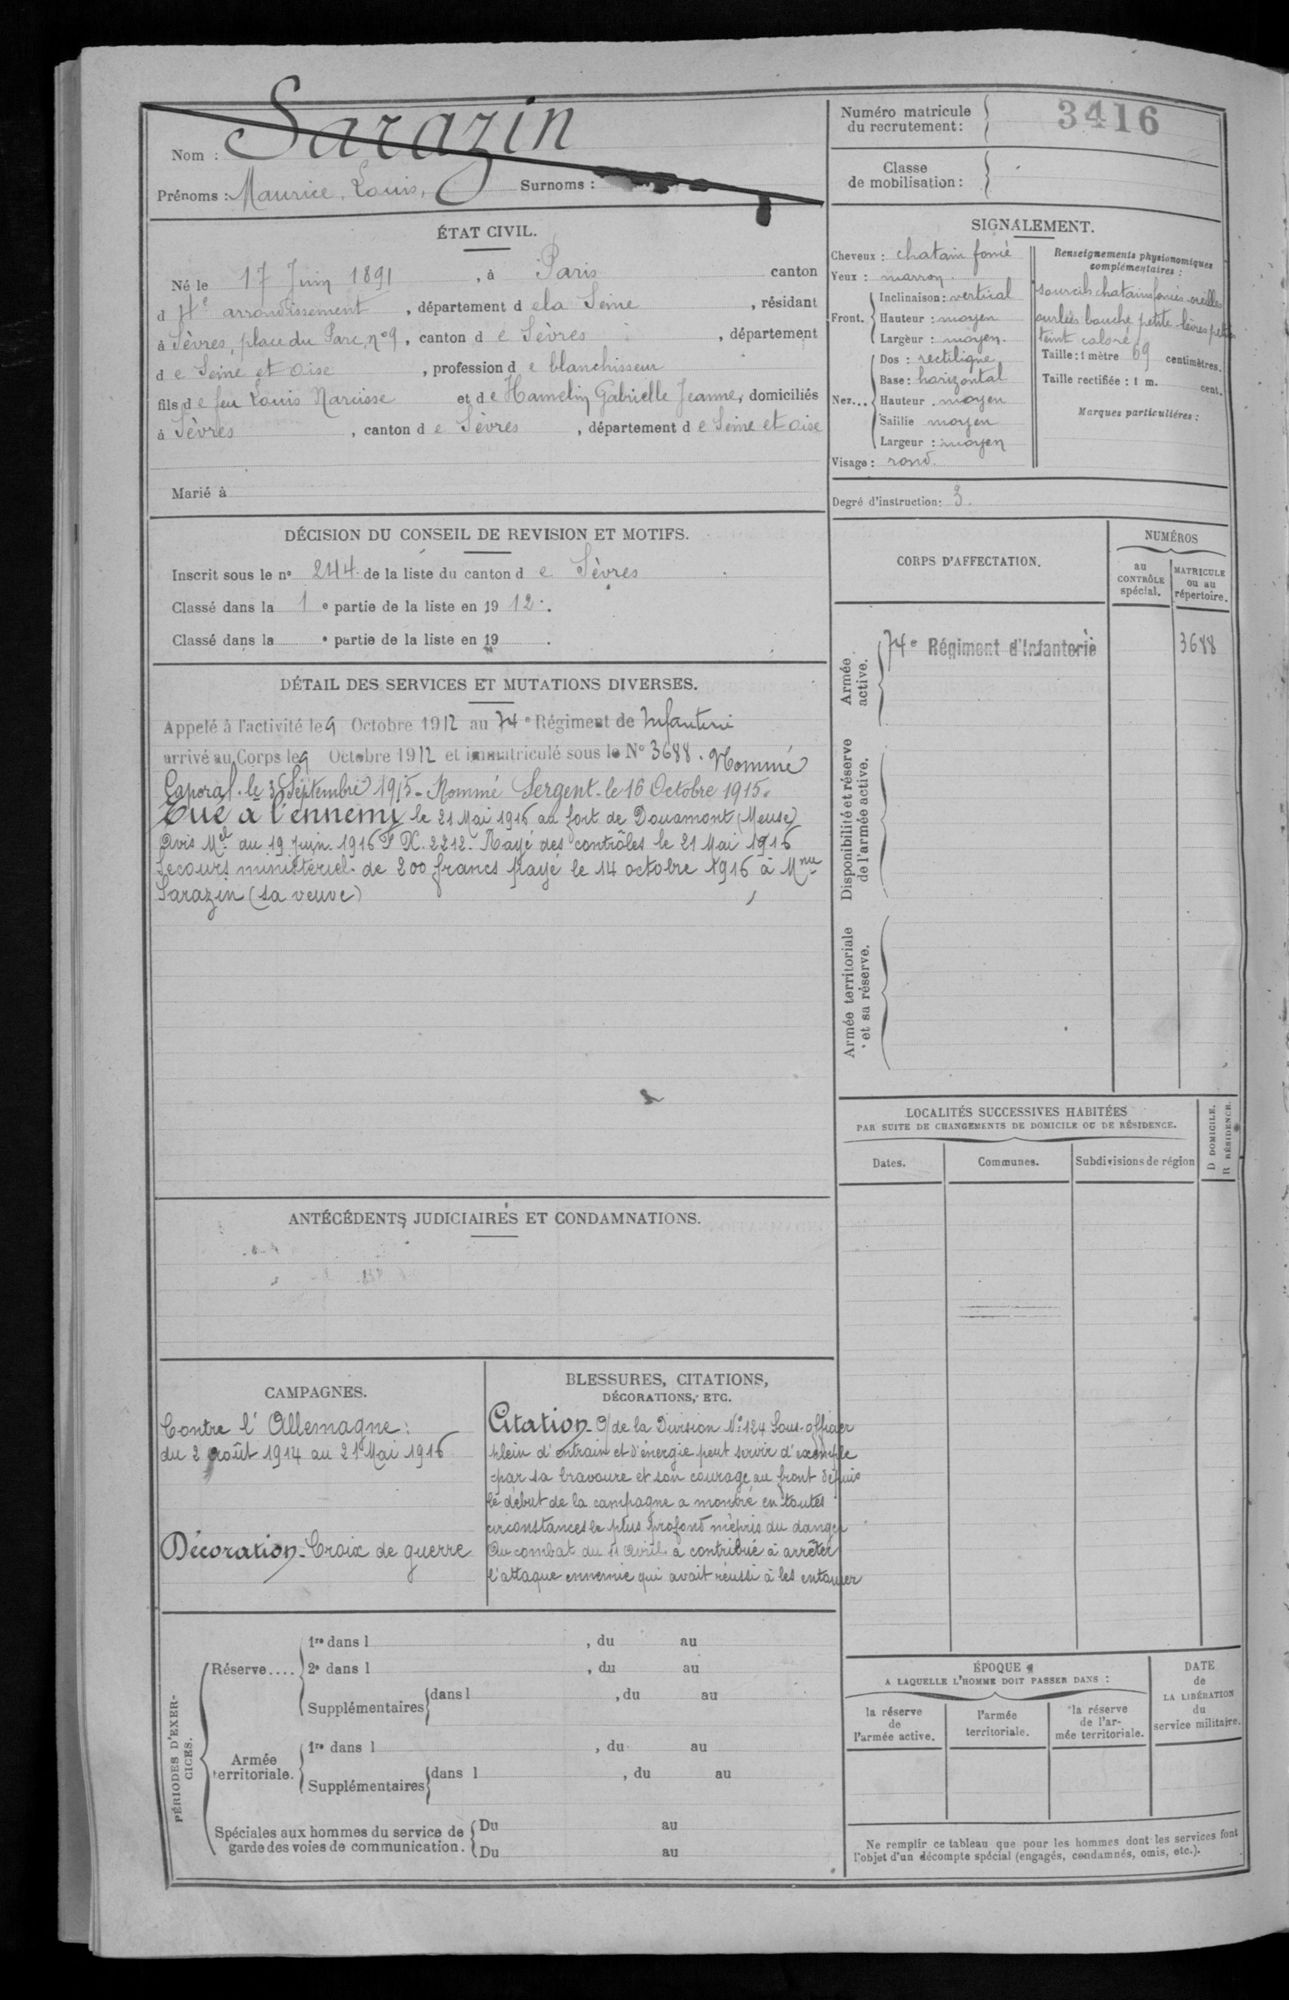 Nom : Sarazin
Prénoms : Maurice, Louis, Surnoms :
Numéro matricule
du recrutement : 3416
Classe
de mobilisation :
ÉTAT CIVIL.
Né le 17 Juin 1891, à Paris canton
d 4e arrondissement, département d ela Seine, résidant
à Sèvres, place du Parc, n°9, canton d e Sèvres, département
d e Seine et Oise, profession d e blanchisseur
fils d e feu Louis Narcisse et d e Hamelin Gabrielle Jeanne, domiciliés
à Sèvres, canton d e Sèvres, département d e Seine et Oise
Marié à
SIGNALEMENT.
Cheveux : chatain foncé
Yeux : marron.
Front. Inclinaison : vertical
Hauteur : moyen
Largeur : moyen.
Nez... Dos : rectiligne
Base : horizontal
Hauteur : moyen
Saillie moyen
Largeur : moyen
Visage : rond.
Renseignements physionomiques
complémentaires :
sourcils chatains foncés oreilles
ourlées bouche petite lèvres petites
teint coloré
Taille : 1 mètre 69 centimètres.
Taille rectifiée : 1 m. cent.
Marques particulières :
Degré d'instruction : 3.
DÉCISION DU CONSEIL DE REVISION ET MOTIFS.
Inscrit sous le n° 244. de la liste du canton d e Sèvres
Classé dans la 1 e partie de la liste en 19 12.
Classé dans la e partie de la liste en 19 .
CORPS D'AFFECTATION.
NUMÉROS
au
CONTRÔLE
spécial.
MATRICULE
ou au
répertoire.
Armée
active.
74e Régiment d'Infanterie 3688
Disponibilité et réserve
de l'armée active.
Armée territoriale
et sa réserve.
DÉTAIL DES SERVICES ET MUTATIONS DIVERSES.
Appelé à l'activité le 9 Octobre 1912 au 74e Régiment de Infanterie
arrivé au Corps le 9 Octobre 1912 et immatriculé sous le N° 3688. Nommé
Caporal le Septembre 1915 - Nommé Sergent le 16 Octobre 1915.
Tué à l'ennemi le 21 Mai 1916 au fort de Douamont (Meuse)
Avis Mel du 19 Juin 1916 F X. 2212. Rayé des contrôles le 21 Mai 1916
Secours ministériel de 200 francs payé le 14 octobre 1916 à Mme
Sarazin (sa veuve)
LOCALITÉS SUCCESSIVES HABITÉES
PAR SUITE DE CHANGEMENTS DE DOMICILE OU DE RÉSIDENCE.
Dates.
Communes.
Subdivisions de région
D DOMICILE.
R RÉSIDENCE.
ANTÉCÉDENTS JUDICIAIRES ET CONDAMNATIONS.
CAMPAGNES.
Contre l'Allemagne :
du 2 août 1914 au 21 Mai 1916
Décoration - Croix de guerre
BLESSURES, CITATIONS,
DÉCORATIONS, ETC.
Citation - O/ de la Division N° 124 Sous-officier
plein d'entrain et d'énergie peut servir d'exemple
par sa bravoure et son courage au front depuis
le début de la campagne a montré en toutes
circonstances le plus profond mépris du danger
Au combat du 11 Avril a contribué à arrêter
l'attaque ennemie qui avait réussi à les entamer
PÉRIODES D'EXER-
CICES.
Réserve.... 1re dans l , du au
2e dans l , du au
Supplémentaires dans l , du au
Armée
territoriale. 1re dans l , du au
Supplémentaires dans l , du au
Spéciales aux hommes du service de
garde des voies de communication.
Du au
Du au
ÉPOQUE
A LAQUELLE L'HOMME DOIT PASSER DANS :
la réserve
de
l'armée active.
l'armée
territoriale.
la réserve
de l'ar-
mée territoriale.
DATE
de
LA LIBÉRATION
du
service militaire.
Ne remplir ce tableau que pour les hommes dont les services font
l'objet d'un décompte spécial (engagés, condamnés, omis, etc.).